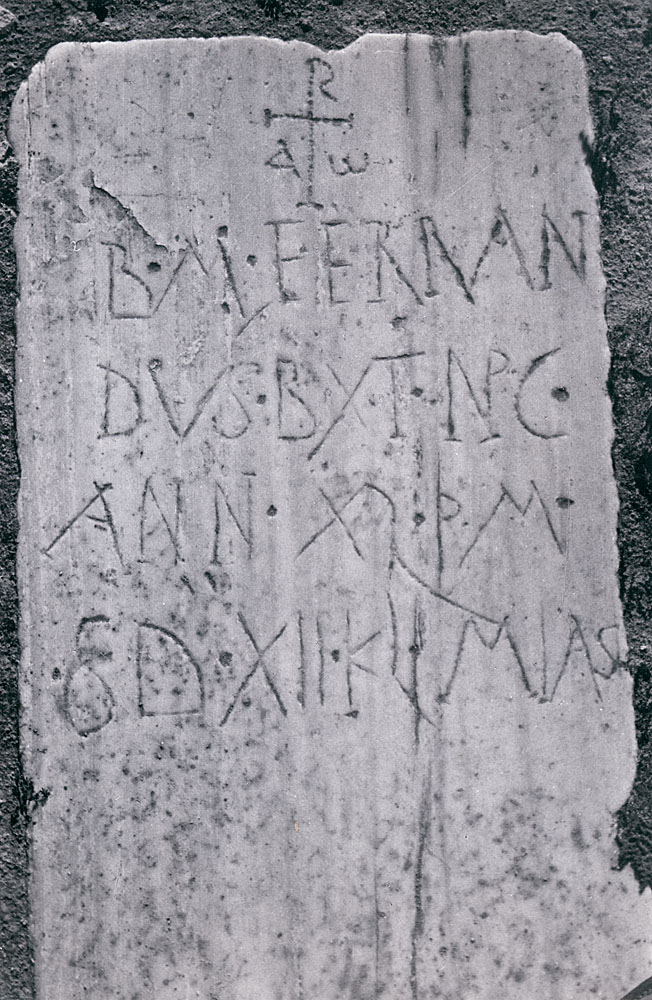 R
A ω
B·M·FERNAN
DVS·BX·T·N·P·C·
ANN·XL·P·M·
D·XII·KL·MIAS